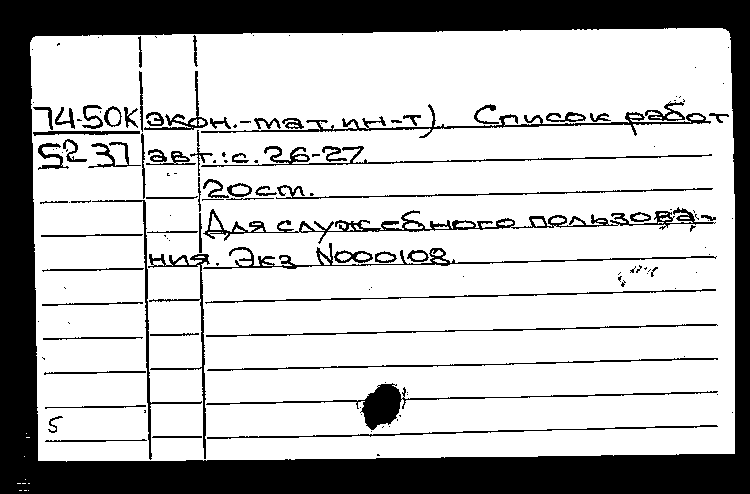 74-50К экон.-мат. ин-т). Список работ
52 37 авт.: с. 26-27.
20 cm.
Для служебного пользова-
ния. Экз N000108.
5